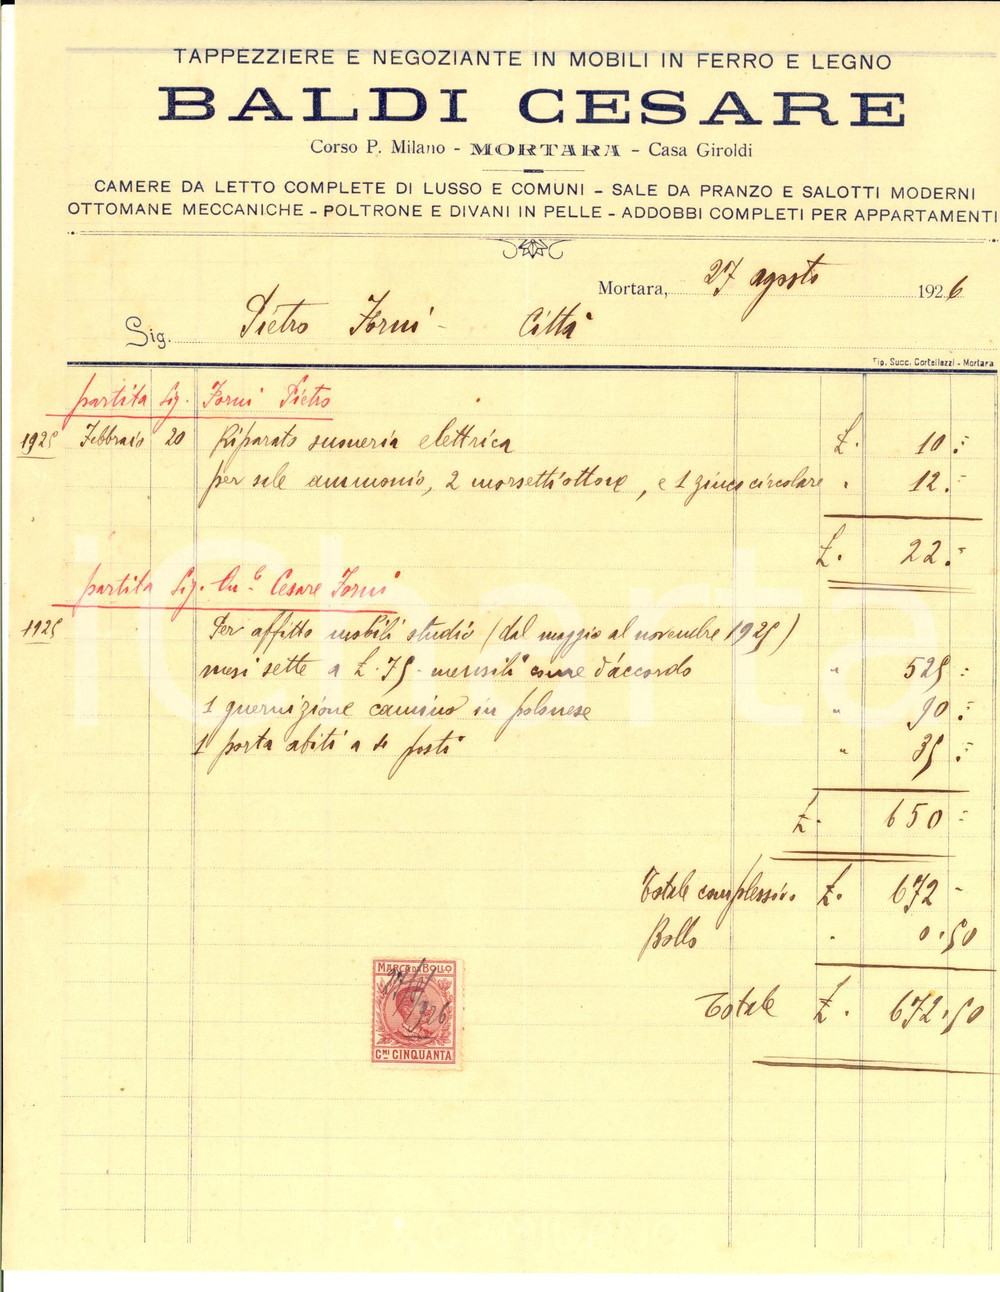 TAPPEZZIERE E NEGOZIANTE IN MOBILI IN FERRO E LEGNO
BALDI CESARE
Corso P. Milano - MORTARA - Casa Giroldi
CAMERE DA LETTO COMPLETE DI LUSSO E COMUNI - SALE DA PRANZO E SALOTTI MODERNI
OTTOMANE MECCANICHE - POLTRONE E DIVANI IN PELLE - ADDOBBI COMPLETI PER APPARTAMENTI
Mortara, 27 agosto 1926
Sig. Pietro Forni - Città
Tip. Succ. Cortellezzi - Mortara
partita Sig. Forni Pietro
1925 Febbraio 20 Riparato suoneria elettrica £. 10.=
per sale ammonio, 2 morsetti ottone, e 1 zinco circolare " 12.=
£. 22.=
partita Sig. Cesare Forni
1925 Per affitto mobili studio (dal maggio al novembre 1925)
mesi sette a £. 75 - mensili come d'accordo " 525.=
1 guernizione camino in polonese " 90.=
1 porta abiti a 4 posti " 35.=
£. 650 =
Totale complessivo £. 672 -
Bollo " 0.50
Totale £. 672.50
MARCA DA BOLLO
27/8/926
CMI CINQUANTA